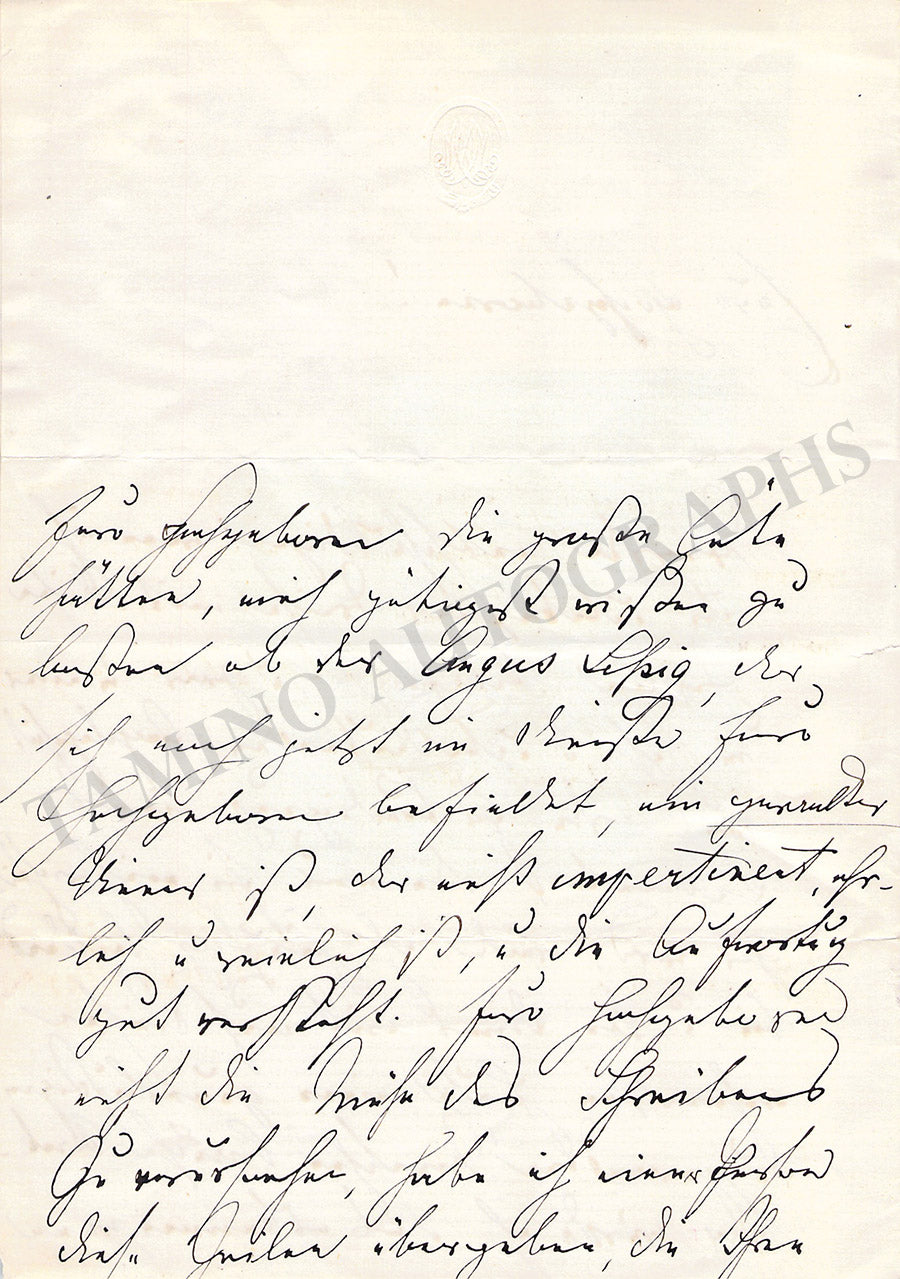 Euro Hochgeboren die große Güte
hätten, mich gütigst wißen zu
laßen ob der August Leßig, der
sich noch jetzt im Dienste Euro
Hochgeboren befindet, ein gewandter
Diener ist, der nicht impertinent, ehr-
lich u reinlich ist, u die Aufwartug
gut versteht. Euro Hochgeboren
nicht die Mühe des Schreibens
zu verursachen, habe ich einer Person
diese Zeilen übergeben, die Ihre
TAMINO AUTOGRAPHS